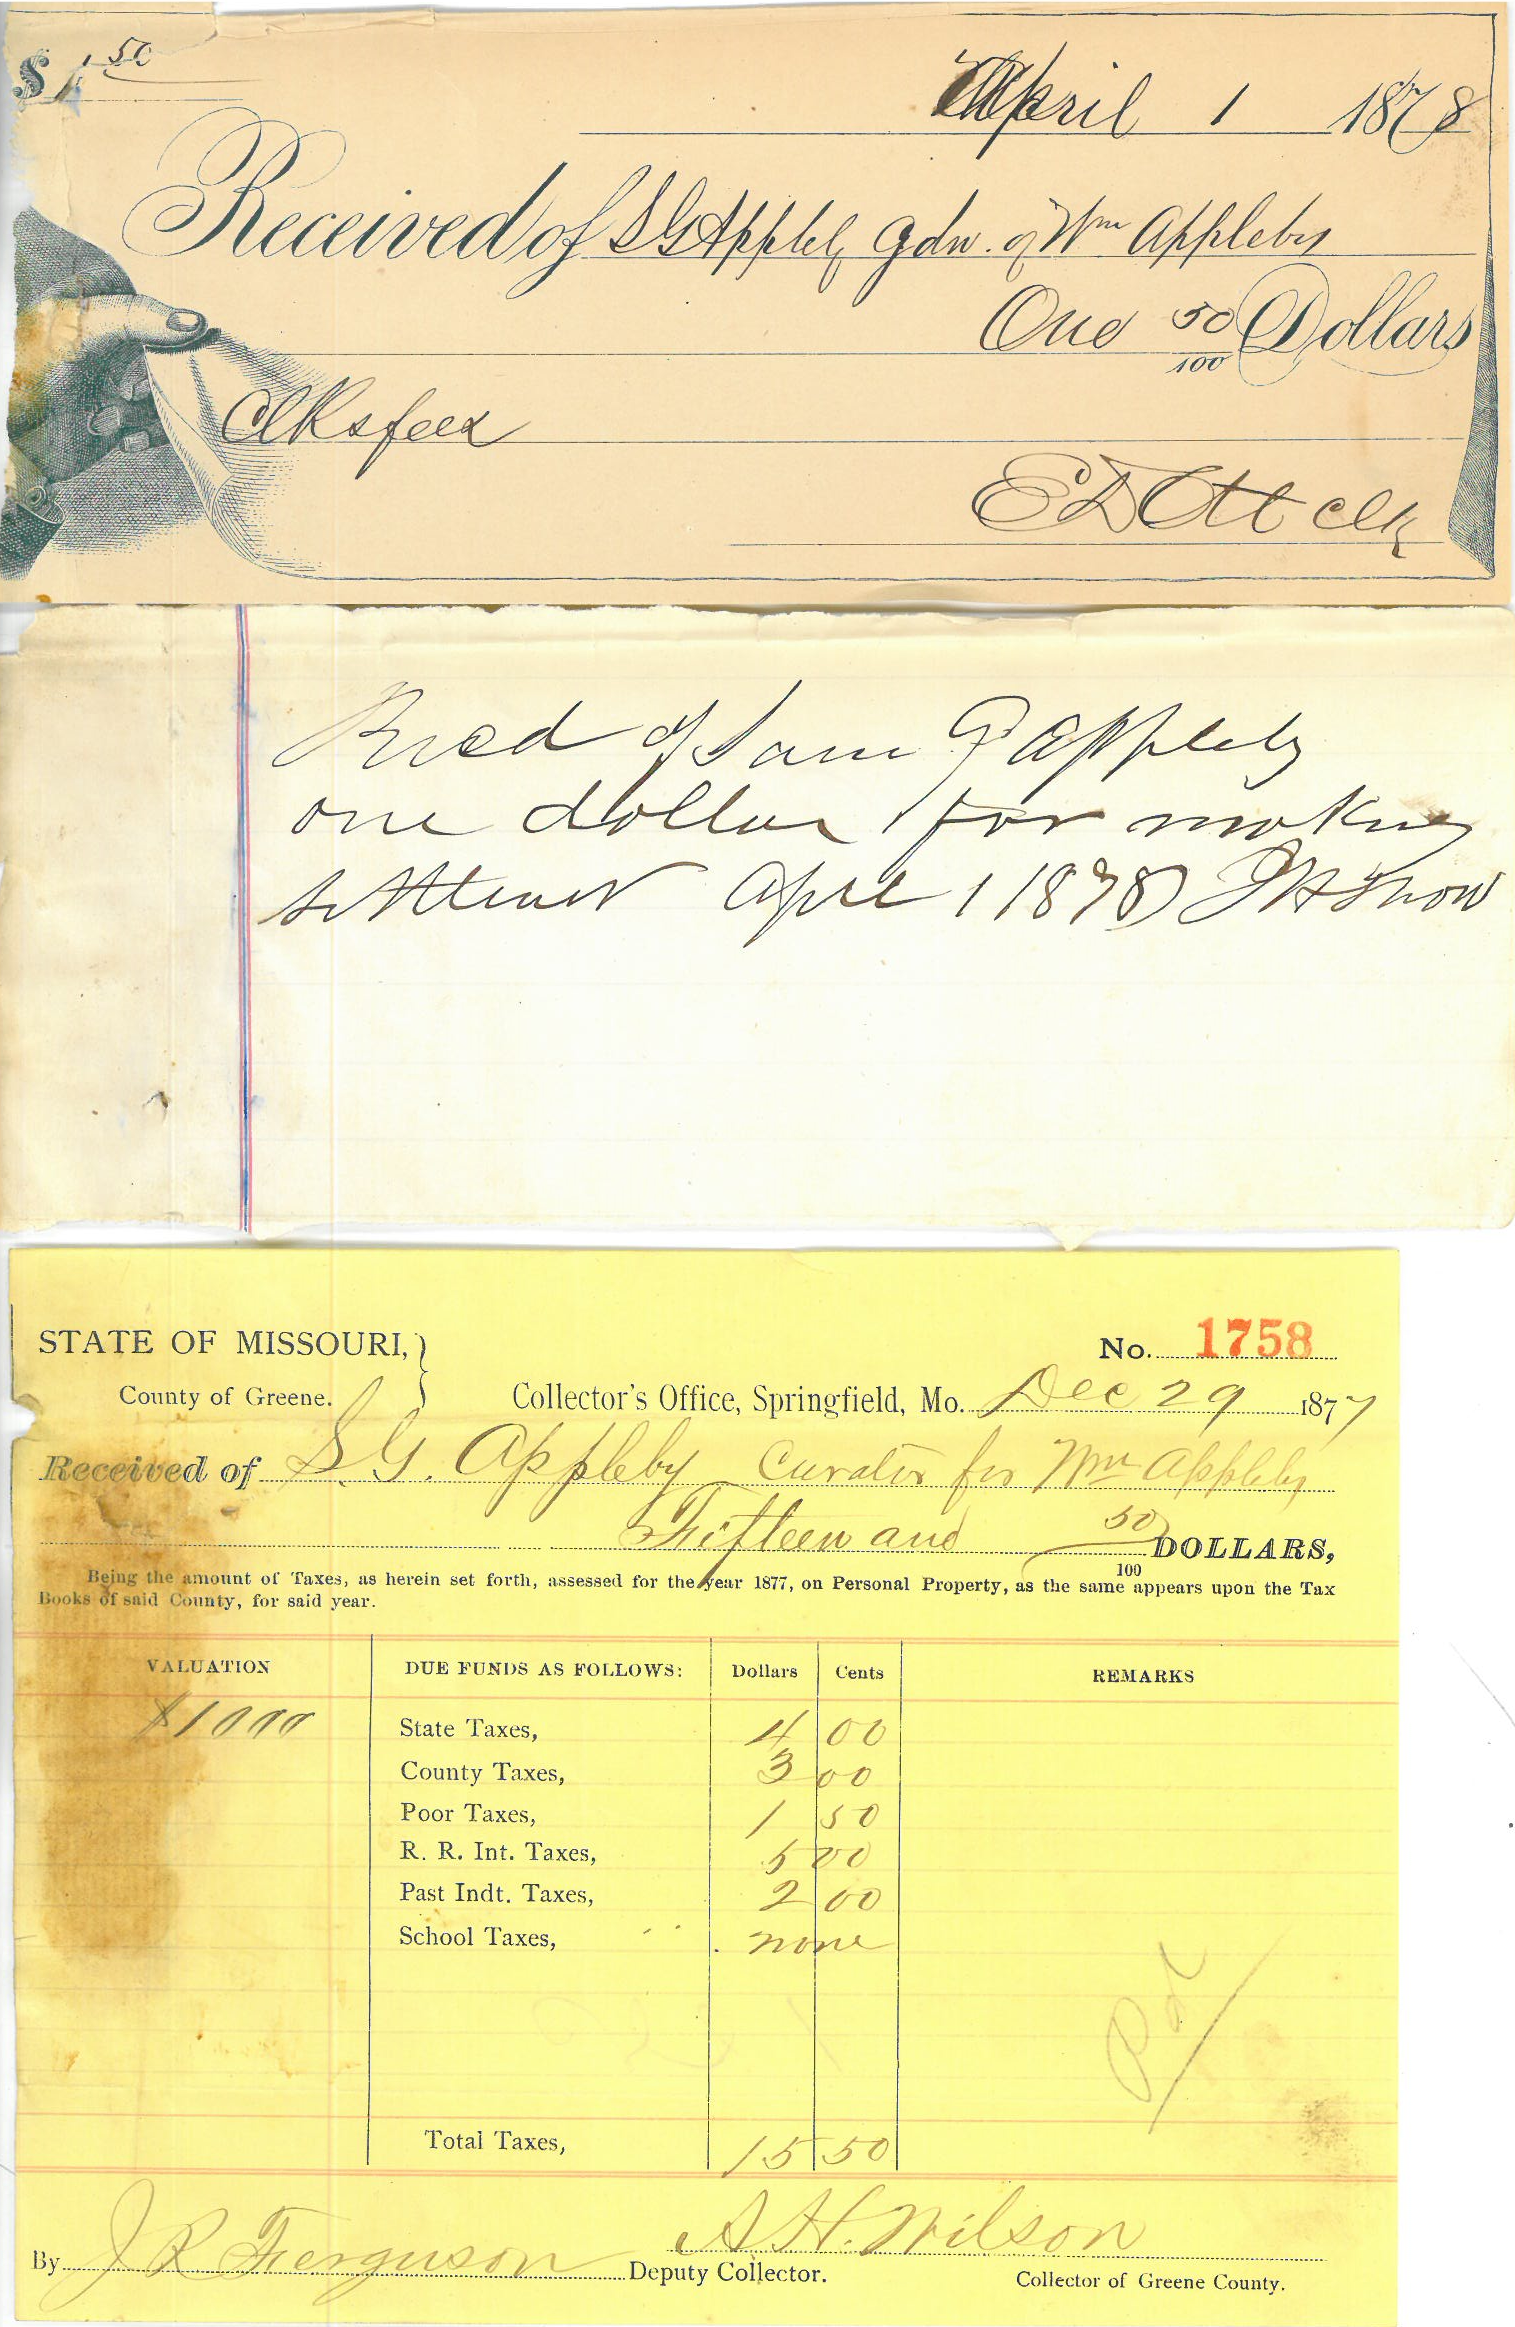 $1 50
April 1 1878
Received of S G Appleby gdn. of Wm Appleby
One 50/100 Dollars
Clks fees
E D Ott Clk
Recd of Sam G Appleby
one dollar for making
settlement April 1 1878 J H Snow
STATE OF MISSOURI, }
County of Greene.
No. 1758
Collector's Office, Springfield, Mo. Dec 29 1877
Received of S. G. Appleby Curator for Wm Appleby
Fifteen and 50/100 DOLLARS,
Being the amount of Taxes, as herein set forth, assessed for the year 1877, on Personal Property, as the same appears upon the Tax
Books of said County, for said year.
VALUATION DUE FUNDS AS FOLLOWS: Dollars Cents REMARKS
$1000 State Taxes, 4 00
County Taxes, 3 00
Poor Taxes, 1 50
R. R. Int. Taxes, 5 00
Past Indt. Taxes, 2 00
School Taxes, none
Pd
Total Taxes, 15 50
By J R Ferguson Deputy Collector. A. H. Wilson
Collector of Greene County.